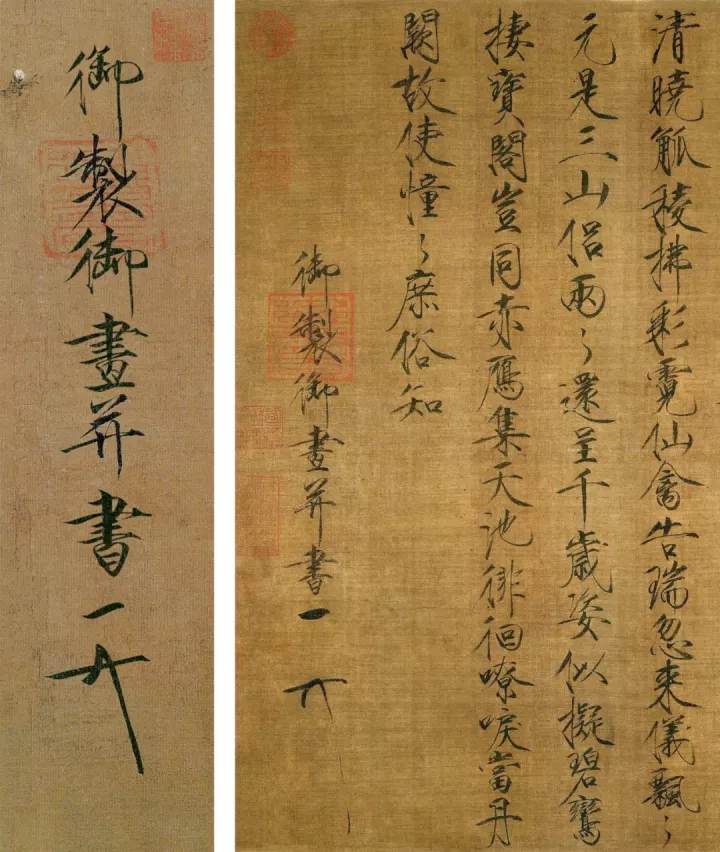 御製御畫并書
清曉觚稜拂彩霓仙禽告瑞忽來儀飄〻
元是三山侶兩〻還呈千歲姿似擬碧鸞
棲寶閣豈同赤鴈集天池徘徊嘹唳當丹
闕故使憧〻庶俗知
御製御畫并書